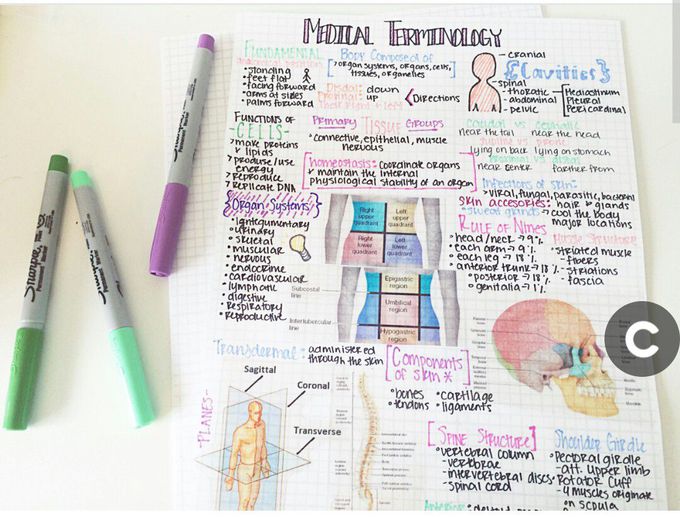 MEDICAL TERMINOLOGY
FUNDAMENTAL
anatomical position
• standing
• feet flat
• facing forward
• arms at sides
• palms forward
Body Composed of
organ systems, organs, cells,
tissues, organelles
Distal: down
Proximal: up
Directions
cranial
spinal
thoracic
abdominal
pelvic
{Cavities}
Mediastinum
Pleural
Pericardinal
FUNCTIONS OF
- CELLS -
make proteins
& lipids
produse/use
energy
reproduce
replicate DNA
PRIMARY TISSUE GROUPS
• connective, epithelial, muscle
nervous
homeostasis: coordinate organs
& maintain the internal
physiological stability of an organ
caudal vs cephalic
near the tail near the head
supine vs prone
lying on back lying on stomach
proximal vs distal
near center farther from
Infections of skin:
viral, fungal, parasitic, bacterial
SKIN ACCESORIES: hair & glands
• sweat glands → cool the body
major locations
{Organ Systems}
• igntegumentary
• urinary
• skeletal
• muscular
• nervous
• endocrine
• cardiovascular
• lymphatic
• digestive
• respiratory
• reproductive
Right upper quadrant
Left upper quadrant
Right lower quadrant
Left lower quadrant
Epigastric region
Subcostal line
Umbilical region
Intertubercular line
Hypogastric region
RULE OF NINES
• head/neck → 9%
• each arm → 9%
• each leg → 18%
• anterior trunk → 18%
• posterior → 18%
• genitalia → 1%
Muscle Structure
• striated muscle
- fibers
- striations
- fascia
C
Transdermal: administered
through the skin
[Components
of skin *
• bones • cartilage
• tendons • ligaments
- PLANES -
Sagittal
Coronal
Transverse
[SPINE STRUCTURE]
• vertebral column
- vertebrae
- intervertebral discs
- spinal cord
Shoulder Girdle
• Pectoral girdle
- att. upper limb
• Rotator cuff
- 4 muscles originate
on scapula
Sharpie
Sharpie
Sharpie